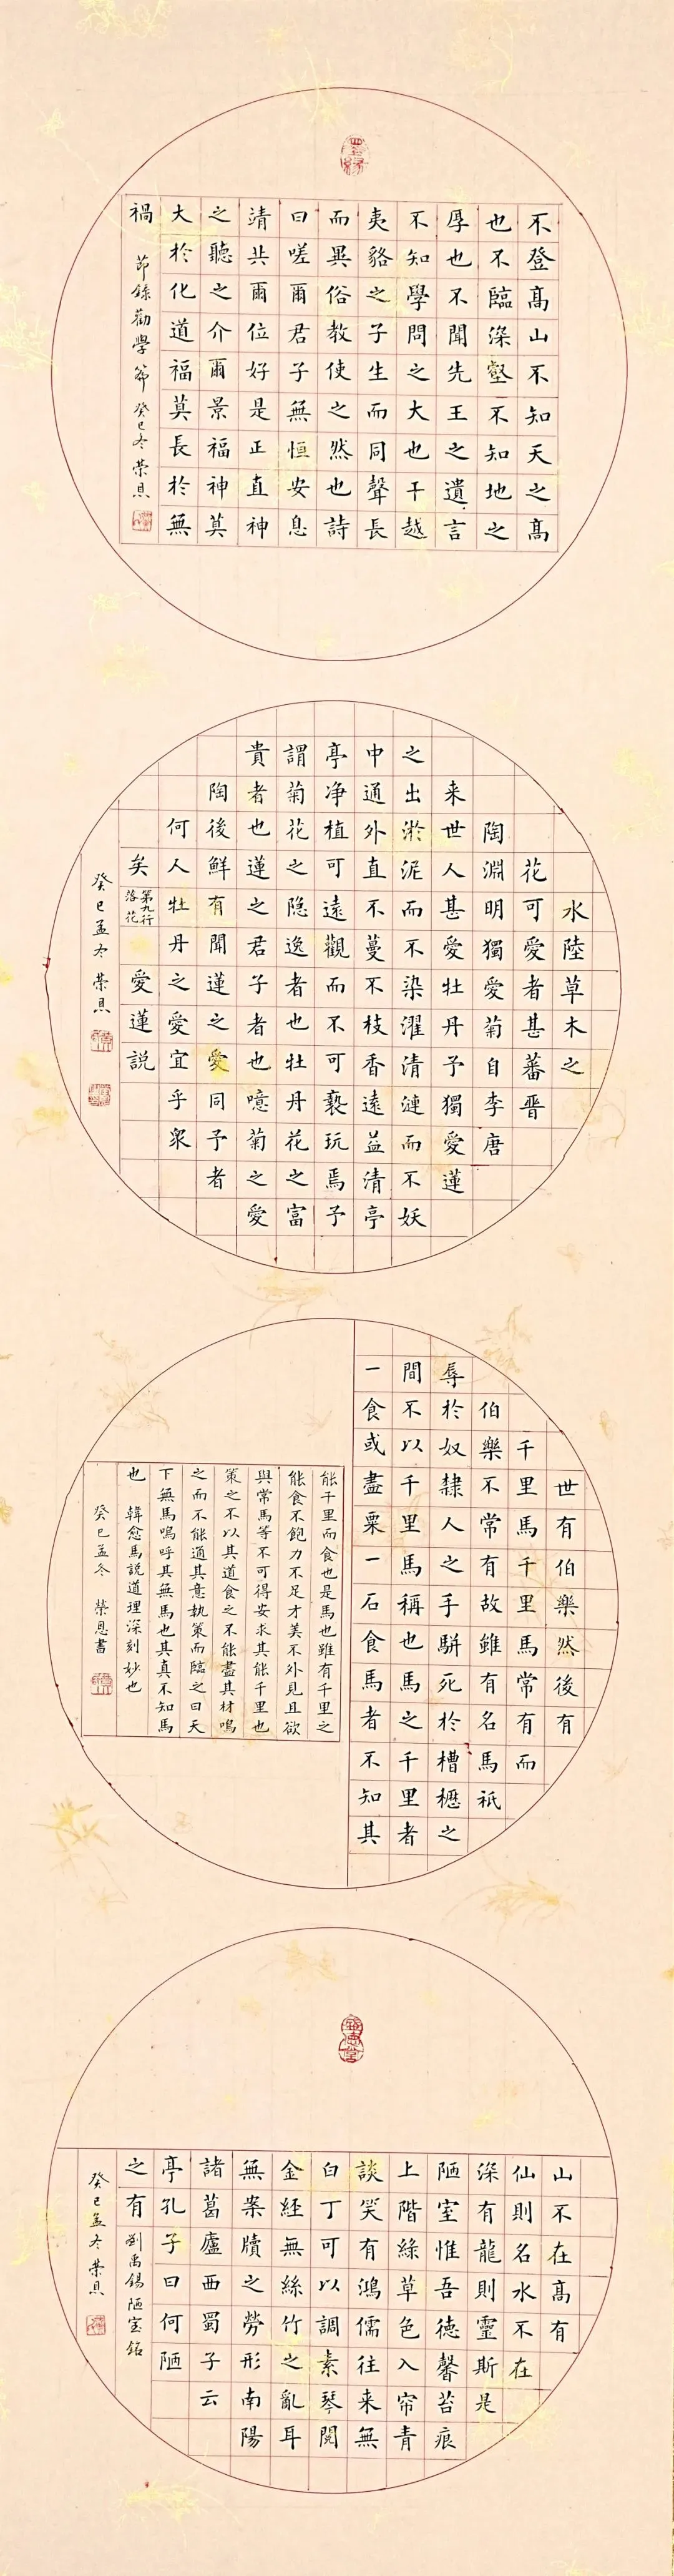 不登高山不知天之高
也不臨深壑不知地之
厚也不聞先王之遺言
不知學問之大也干越
夷貉之子生而同聲長
而異俗教使之然也詩
曰嗟爾君子無恒安息
靖共爾位好是正直神
之聽之介爾景福神莫
大於化道福莫長於無
禍 節錄勸學篇 癸巳冬 榮恩
水陸草木之
花可愛者甚蕃晋
陶淵明獨愛菊自李唐
来世人甚愛牡丹予獨愛蓮
之出淤泥而不染濯清漣而不妖
中通外直不蔓不枝香遠益清亭
亭净植可遠觀而不可褻玩焉予
謂菊花之隐逸者也牡丹花之富
貴者也蓮之君子者也噫菊之愛
陶後鮮有聞蓮之愛同予者
何人牡丹之愛宜乎衆
矣 第九行落花 愛蓮説
癸巳孟冬 榮恩
世有伯樂然後有
千里馬千里馬常有而
伯樂不常有故雖有名馬祇
辱於奴隸人之手駢死於槽櫪之
間不以千里馬稱也馬之千里者
一食或盡粟一石食馬者不知其
能千里而食也是馬也雖有千里之
能食不飽力不足才美不外見且欲
與常馬等不可得安求其能千里也
策之不以其道食之不能盡其材鳴
之而不能通其意執策而臨之曰天
下無馬嗚呼其無馬也其真不知馬
也 韓愈馬説道理深刻妙也
癸巳孟冬 榮恩書
山不在高有
仙則名水不在
深有龍則靈斯是
陋室惟吾德馨苔痕
上階綠草色入帘青
談笑有鴻儒往来無
白丁可以調素琴閲
金經無絲竹之亂耳
無案牘之勞形南陽
諸葛廬西蜀子云
亭孔子曰何陋
之有 劉禹錫陋室銘
癸巳孟冬 榮恩